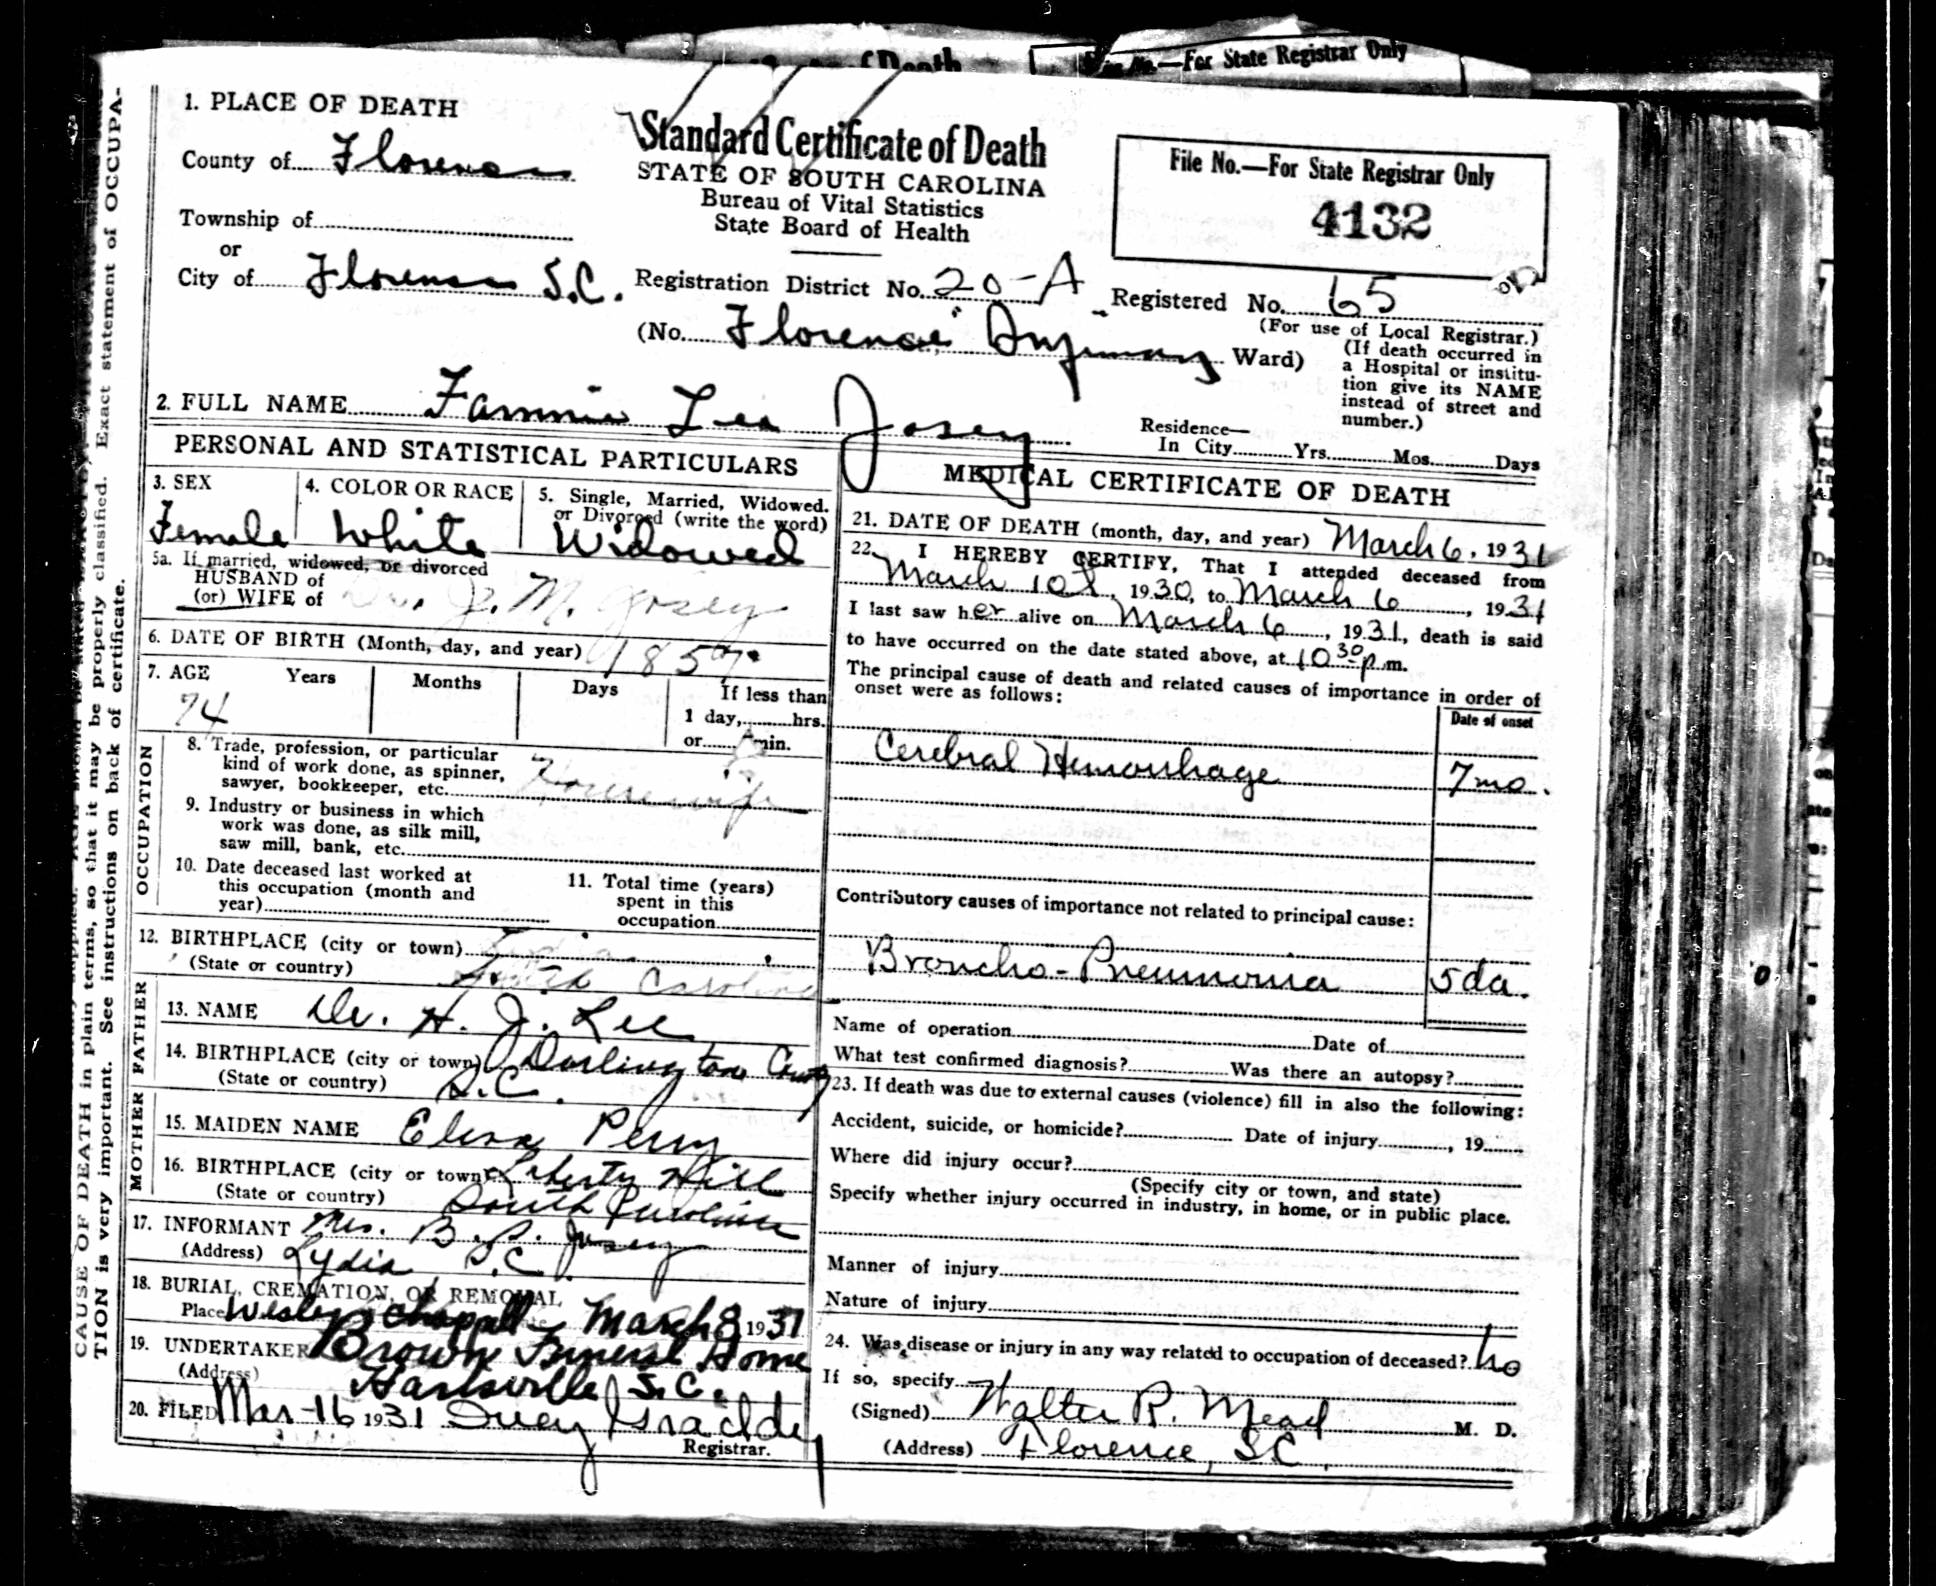 File No.—For State Registrar Only
1. PLACE OF DEATH
County of Florence
Township of
or
City of Florence S.C.
Standard Certificate of Death
STATE OF SOUTH CAROLINA
Bureau of Vital Statistics
State Board of Health
File No.—For State Registrar Only
4132
Registration District No. 20-A Registered No. 65
(For use of Local Registrar.)
(No. Florence Infirmary Ward)
(If death occurred in
a Hospital or institu-
tion give its NAME
instead of street and
number.)
2. FULL NAME Fannie Lea Josey
Residence—
In City Yrs. Mos. Days
PERSONAL AND STATISTICAL PARTICULARS
3. SEX
Female
4. COLOR OR RACE
White
5. Single, Married, Widowed.
or Divorced (write the word)
Widowed
5a. If married, widowed, or divorced
HUSBAND of
(or) WIFE of Dr. J. M. Josey
6. DATE OF BIRTH (Month, day, and year) 1857
7. AGE Years Months Days If less than
74
1 day, hrs.
or min.
OCCUPATION
8. Trade, profession, or particular
kind of work done, as spinner,
sawyer, bookkeeper, etc. Housewife
9. Industry or business in which
work was done, as silk mill,
saw mill, bank, etc.
10. Date deceased last worked at
this occupation (month and
year)
11. Total time (years)
spent in this
occupation
12. BIRTHPLACE (city or town) Lydia
(State or country) South Carolina
FATHER
13. NAME Dr. H. J. Lee
14. BIRTHPLACE (city or town) Darlington County
(State or country) S.C.
MOTHER
15. MAIDEN NAME Eliza Perry
16. BIRTHPLACE (city or town) Liberty Hill
(State or country) South Carolina
17. INFORMANT Mrs. B. P. Josey
(Address) Lydia S.C.
18. BURIAL, CREMATION, OR REMOVAL
Place Wesley Chapell March 8 1931
19. UNDERTAKER Brown Funeral Home
(Address) Hartsville S.C.
20. FILED Mar-16 1931
Registrar.
MEDICAL CERTIFICATE OF DEATH
21. DATE OF DEATH (month, day, and year) March 6, 1931
22. I HEREBY CERTIFY, That I attended deceased from
March 10, 1930, to March 6, 1931
I last saw her alive on March 6, 1931, death is said
to have occurred on the date stated above, at 10 30 p.m.
The principal cause of death and related causes of importance in order of
onset were as follows:
Date of onset
Cerebral Hemorrhage 7 mo.
Contributory causes of importance not related to principal cause:
Broncho-Pneumonia 5 da.
Name of operation Date of
What test confirmed diagnosis? Was there an autopsy?
23. If death was due to external causes (violence) fill in also the following:
Accident, suicide, or homicide? Date of injury, 19
Where did injury occur?
(Specify city or town, and state)
Specify whether injury occurred in industry, in home, or in public place.
Manner of injury
Nature of injury
24. Was disease or injury in any way related to occupation of deceased? No
If so, specify
(Signed) Walter R. Mead M. D.
(Address) Florence, S.C.
CAUSE OF DEATH in plain terms, so that it may be properly classified. Exact statement of OCCUPA-
TION is very important. See instructions on back of certificate.